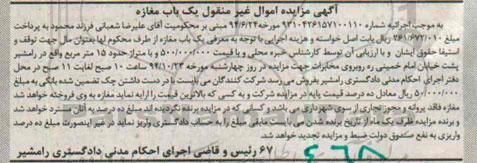 آگهی مزایده اموال غیر منقول یک باب مغازه
به موجب اجرائیه شماره ۹۳۱۰۴۲۶۱۵۷۱۰۰۱۱۰ مورخه ۹۴/۶/۲۲ مبنی بر محکومیت آقای علیرضا شعبانی فرزند محمود به پرداخت
مبلغ ۲۶۱/۶۷۲/۰۱۰ ریال بابت اصل خواسته و هزینه اجرایی با توجه به معرفی یک باب مغازه از طرف محکوم لها بعنوان مال جهت توقف و
استیفا حقوق ایشان و با ارزیابی آن توسط کارشناس خبره محلی و با قیمت ۵۰۰/۰۰۰/۰۰۰ و با متراژ حدود ۱۵ متر مربع واقع در رامشیر
پشت خیابان امام خمینی ره روبروی مخابرات جهت مزایده در روز چهارشنبه مورخه ۹۴/۱۰/۲۳ ساعت ۱۰ صبح لغایت ۱۱ صبح در محل
دفتر اجرای احکام مدنی دادگستری رامشیر بفروش می رسد شرکت کنندگان می بایست با در دست داشتن چک تضمین شده بانکی به مبلغ
۵۰/۰۰۰/۰۰۰ ریال معادل ده درصد قیمت پایه در مزایده شرکت و به کسی که بالاترین قیمت را ارایه نماید مغازه به وی فروخته خواهد شد
مغازه فاقد پروانه و مجوز تجاری از سوی شهرداری می باشد و کسانی که در مزایده برنده نگردیده اند مبلغ ده درصد به آنان مسترد خواهد شد
و برنده مزایده ظرف یک ماه از تاریخ برنده شدن می بایست مابقی مبلغ را به حساب دادگستری واریز نماید در غیر اینصورت مبلغ ده درصد
واریزی به نفع صندوق دولت ضبط و مزایده تجدید خواهد شد.
۶۷ رئیس و قاضی اجرای احکام مدنی دادگستری رامشیر